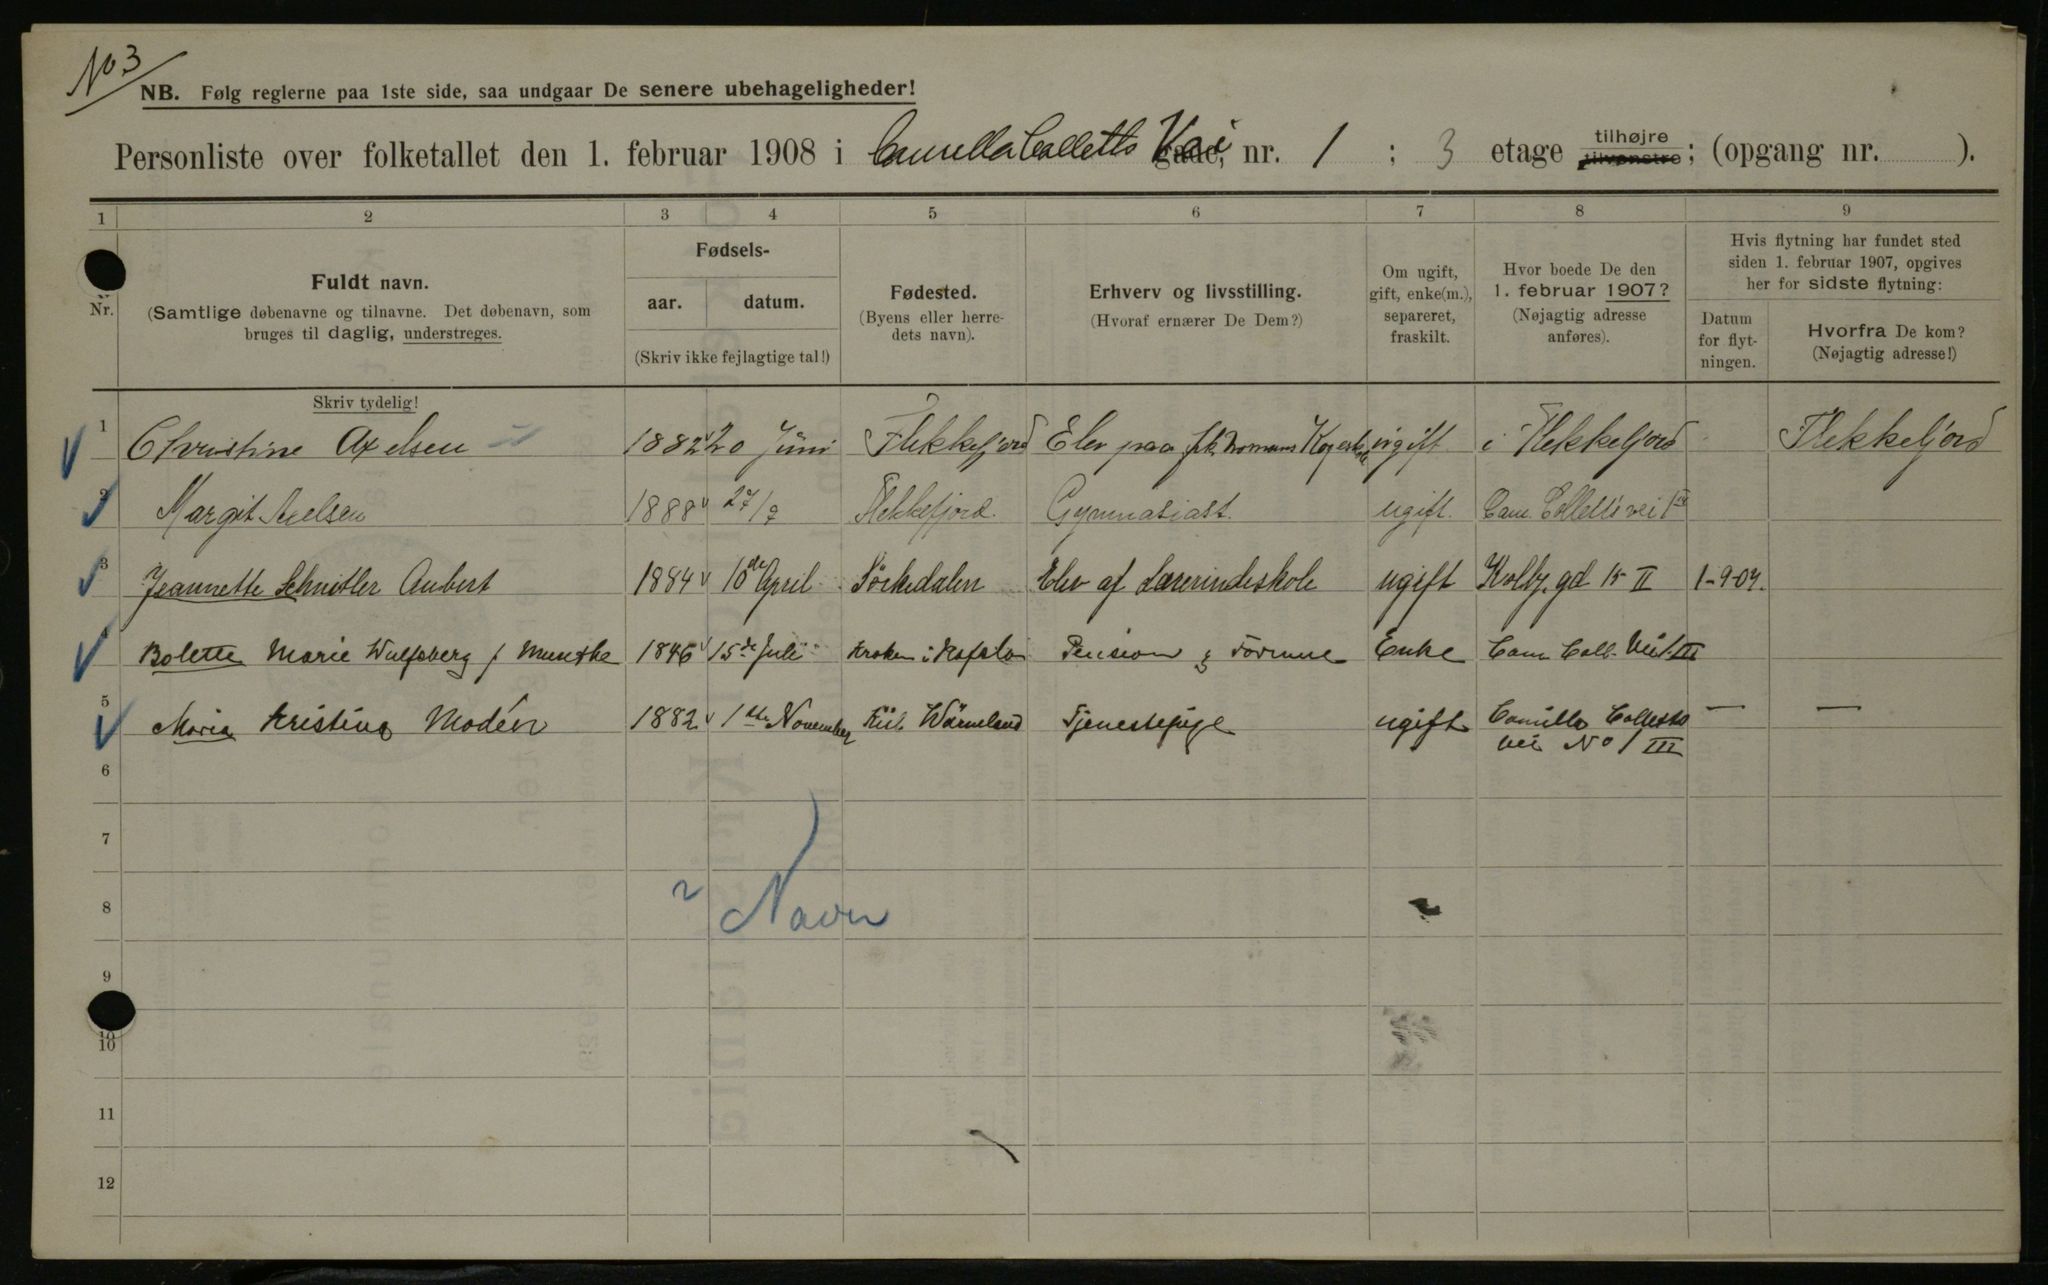 No 3
NB. Følg reglerne paa 1ste side, saa undgaar De senere ubehageligheder!
Personliste over folketallet den 1. februar 1908 i Camilla Colletts Vei gade, nr. 1 ; 3 etage tilhøjre tilvenstre; (opgang nr. ).
1 2 3 4 5 6 7 8 9
Nr.
Fuldt navn.
(Samtlige døbenavne og tilnavne. Det døbenavn, som
bruges til daglig, understreges.
Skriv tydelig!
Fødsels-
aar. datum.
(Skriv ikke fejlagtige tal!)
Fødested.
(Byens eller herre-
dets navn).
Erhverv og livsstilling.
(Hvoraf ernærer De Dem?)
Om ugift,
gift, enke(m.),
separeret,
fraskilt.
Hvor boede De den
1. februar 1907?
(Nøjagtig adresse
anføres).
Hvis flytning har fundet sted
siden 1. februar 1907, opgives
her for sidste flytning:
Datum
for flyt-
ningen.
Hvorfra De kom?
(Nøjagtig adresse!)
1 Christine Axelsen 1882 20 Juni Flekkefjord Elev paa frk. ugift i Flekkefjord Flekkefjord
2 Margit Axelsen 1888 Flekkefjord. Gymnasiast. ugift. Cam. Colletts vei 1 III
3 Jeannette Schnitler Aubert 1884 10de April Sörkedalen Elev af Lærerindeskole ugift Kolbj. gd 15 II 1-9-07.
Bolette Marie Wulfsberg f Munthe 1846 15de Juli Kroken i Hafslo Pension & Formue Enke Cam Coll. Vei 1. III
5 Maria Kristina Modén 1882 1ste November Wärmeland Tjenestepige ugift Camilla Colletts — —
vei No 1 III
6
7
8 Navn
9
10
10
11
12